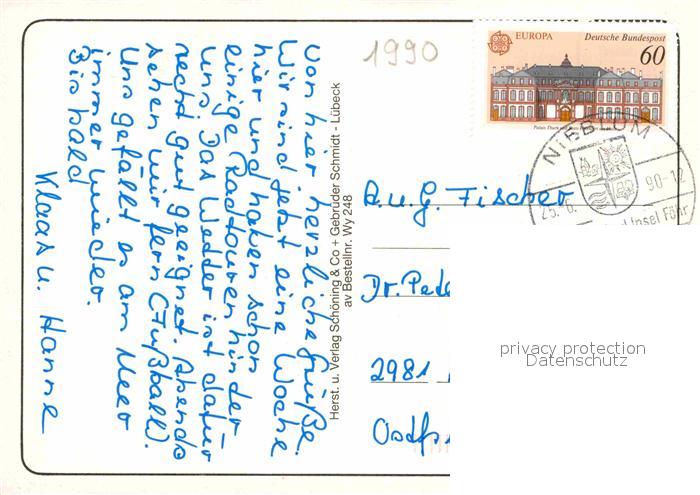 Von hier herzliche Grüße.
Wir sind jetzt eine Woche
hier und haben schon
einige Radtouren hinter
uns. Das Wetter ist dafür
recht gut geeignet. Abends
sehen wir fern (Fußball).
Uns gefällt es am Meer
immer wieder.
Bis bald
Klaas u. Hanne
Herst. u. Verlag Schöning & Co + Gebrüder Schmidt - Lübeck
av Bestellnr. Wy 248
1990
EUROPA Deutsche Bundespost
60
Palais Thurn und Taxis
NIEBLUM
25.6. 90-12
Insel Föhr
A. u. G. Fischer
Dr. Pete
2981
Ostfr
privacy protection
Datenschutz